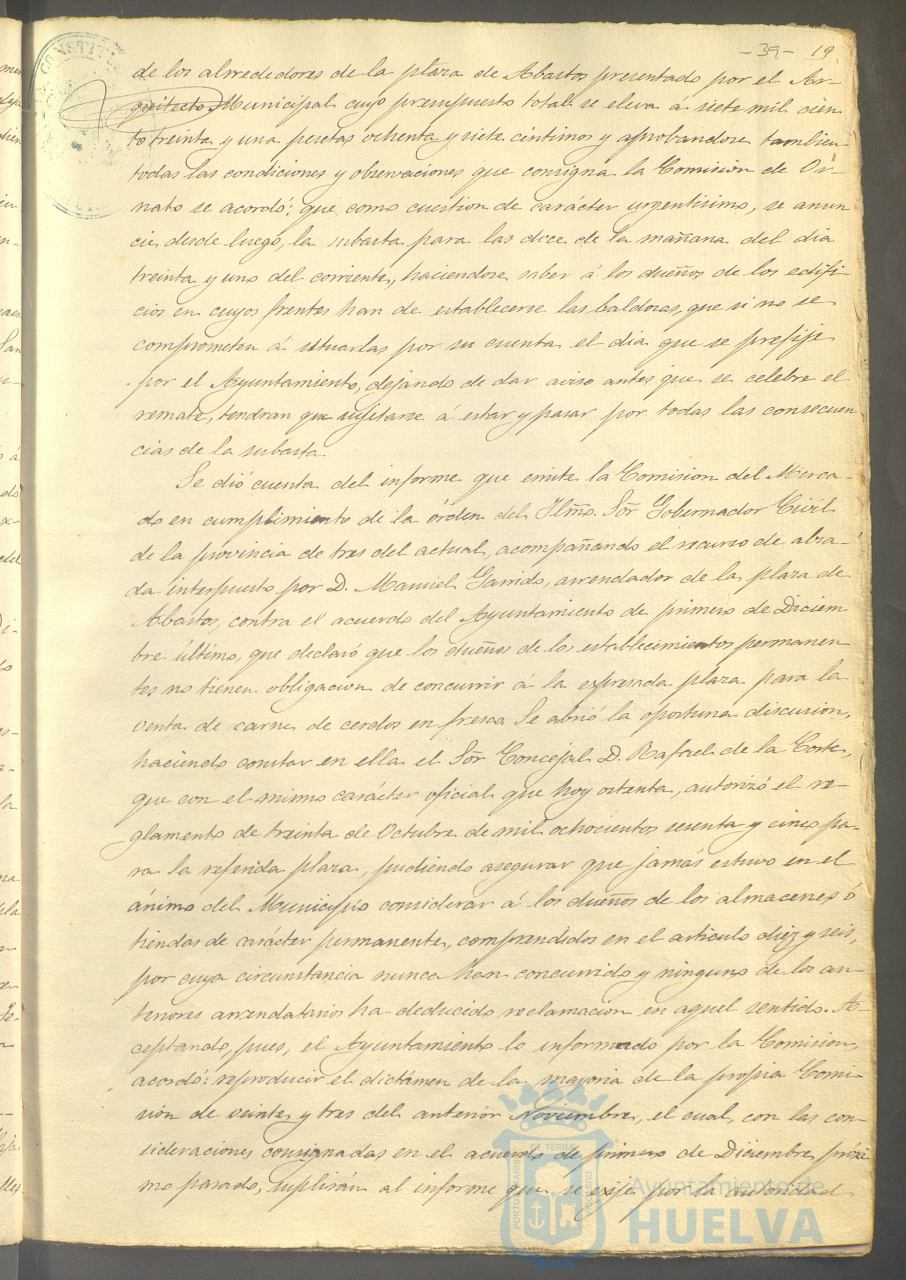 - 39 - 19
CONSTITU
de los alrrededores de la plaza de Abastos presentado por el Ar-
quitecto Municipal cuyo presupuesto total se eleva á siete mil cien
to treinta y una pesetas ochenta y siete céntimos y aprobandose tambien
todas las condiciones y observaciones que consigna la Comision de Or-
nato se acordó: que como cuestion de carácter urgentisimo, se anun
cie, desde luego, la subasta para las doce de la mañana del dia
treinta y uno del corriente, haciendose saber á los dueños de los edifi-
cios en cuyos frentes han de establecerse las baldosas, que si no se
comprometen á situarlas por su cuenta el dia que se prefije
por el Ayuntamiento, dejando de dar aviso antes que se celebre el
remate, tendran que sujetarse á estar y pasar por todas las consecuen
cias de la subasta.
Se dió cuenta del informe que emite la Comision del Merca-
do en cumplimiento de la órden del Ilmõ. Sõr Gobernador Civil
de la provincia de tres del actual, acompañando el recurso de alza-
da interpuesto por D. Manuel Garrido, arrendador de la plaza de
Abastos, contra el acuerdo del Ayuntamiento de primero de Diciem
bre último, que declaró que los dueños de los establecimientos permanen
tes no tienen obligacion de concurrir á la expresada plaza para la
venta de carne de cerdos en fresco. Se abrió la oportuna discusion,
haciendo constar en ella el Sõr Concejal D. Rafael de la Corte,
que con el mismo carácter oficial que hoy ostenta, autorizó el re-
glamento de treinta de Octubre de mil ochocientos sesenta y cinco pa-
ra la referida plaza, pudiendo asegurar que jamás estuvo en el
ánimo del Municipio considerar á los dueños de los almacenes ó
tiendas de carácter permanente, comprendidos en el articulo diez y seis,
por cuya circunstancia nunca han concurrido y ninguno de los an-
teriores arrendatarios ha deducido reclamacion en aquel sentido. A-
ceptando, pues, el Ayuntamiento lo informado por la Comision,
acordó: reproducir el dictámen de la mayoria de la propia Comi-
sion de veinte y tres del anterior Noviembre, el cual, con las con-
sideraciones consignadas en el acuerdo de primero de Diciembre próxi
mo pasado, suplirán al informe que se exije por la autoridad
Ayuntamiento de
HUELVA